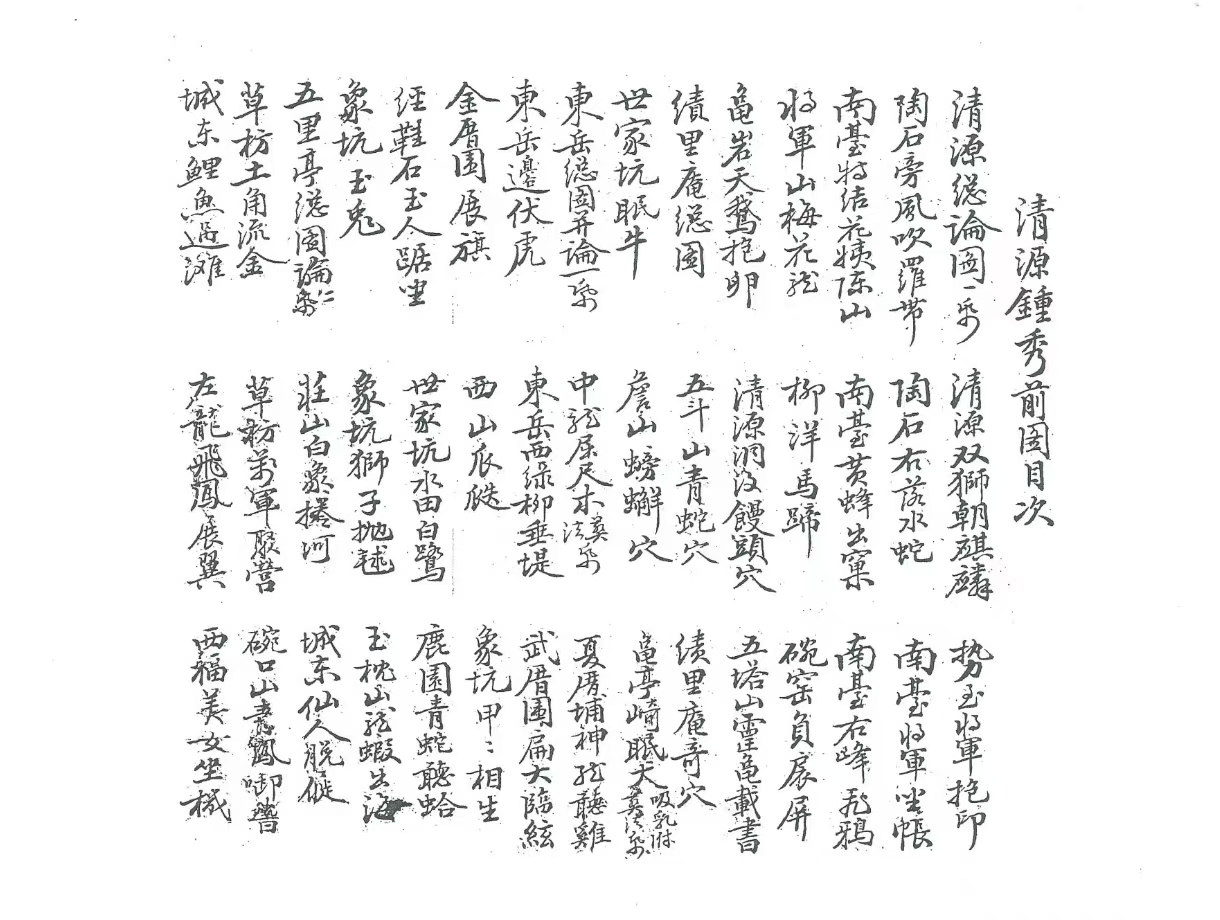 清源鍾秀前圖目次
清源緫論圖一 清源双獅朝麒麟 势至将軍抱印
陶石旁風吹羅帶 陶石右落水蛇 南臺将軍坐帳
南臺特结花姨陈山 南臺黄蜂出窠 南臺右峰飛鴉
将軍山梅花龙 柳洋馬蹄 碗窑負扆屏
龜岩天鵝抱卵 清源洞後饅頭穴 五塔山靈龜載書
績里庵緫圖 五斗山青蛇穴 績里庵奇穴
世家坑眠牛 詹山螃蠏穴 龜亭崎眠犬吸乳附葬法
東岳緫圖并論一 中龙屈尺木葬法 夏厝埔神龙聽雞
東岳邊伏虎 東岳西绿柳垂堤 武厝圍扁大臨絃
金厝園展旗 西山瓜瓞 象坑甲〻相生
經鞋石玉人踞坐 世家坑水田白鷺 鹿園青蛇聽蛤
象坑玉兎 象坑獅子抛毬 玉枕山龙蝦出海
五里亭緫圖論 莊山白象捲河 城东仙人脱
草枋土角流金 草枋萬軍聚營 碗口山鳳啣
城东鯉魚過灘 左龍飛鳳展翼 西福美女坐機